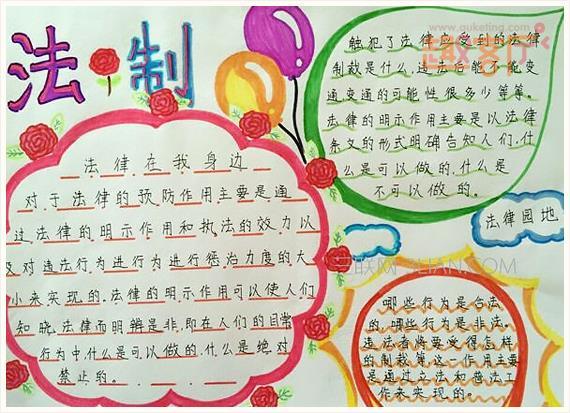 www.guketing.com
法制
法律在我身边
对于法律的预防作用主要是通
过法律的明示作用和执法的效力以
及对违法行为进行为进行惩治力度的大
小来实现的.法律的明示作用可以使人们
知晓.法律而明辨是非,即在人们的目常
行为中.什么是可以做的.什么是绝对
禁止的。
触犯了法律应受到的法律
制裁是什么.违法后能不能变
通,变通的可能性很多少等等。
法律的明示作用主要是以法律
条文的形式明确告知人们,什
么是可以做的.什么是
不可以做的。
法律园地
3LIAN.COM
哪些行为是合法
的.哪些行为是非法.
违法者将要受得怎样
的制裁等这一作用主要
是通过立法和普法工
作来实现的。